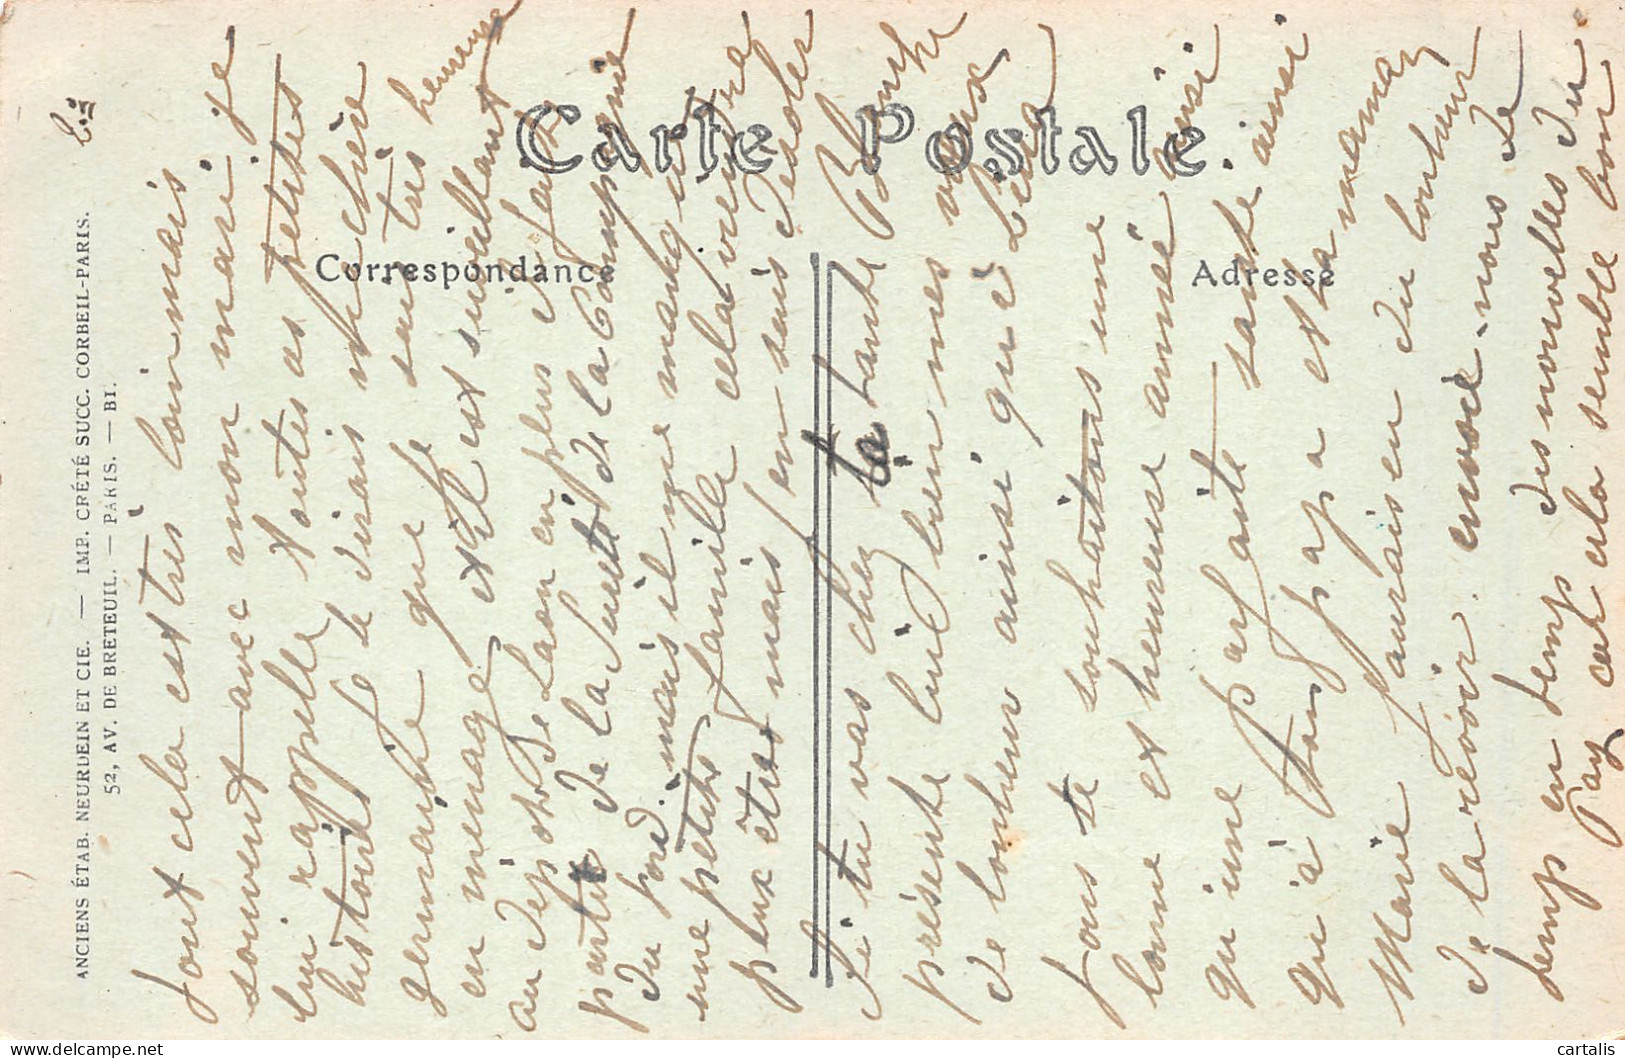 Carte Postale.
Correspondance
Adresse
ANCIENS ÉTAB. NEURDEIN ET CIE. — IMP. CRÉTÉ SUCC. CORBEIL-PARIS.
52, AV. DE BRETEUIL. — PARIS. — BI.
tout cela est très loin mais
souvent avec mon mari je
lui rappelle toutes ces petites
histoires je te dirais ma chère
germaine que je suis très heureuse
en ménage et il est surveillant
au depot de Laon en plus il fait
partie de la Sureté de la Compagnie
du nord. mais il me manque
une petite famille cela viendra
peux être mais j'en suis désolée
Si tu vas chez ta tante Blanche
présente lui bien mes vœux
de bonheur ainsi qu'à Léon
Nous te souhaitons une
bonne et heureuse année ainsi
qu'une parfaite santé ainsi
qu'à ton papa et ta maman
Marie j'aurais eu du bonheur
de la revoir. envoie-nous de
temp en temps des nouvelles du
pay car cela semble bon
cartalis